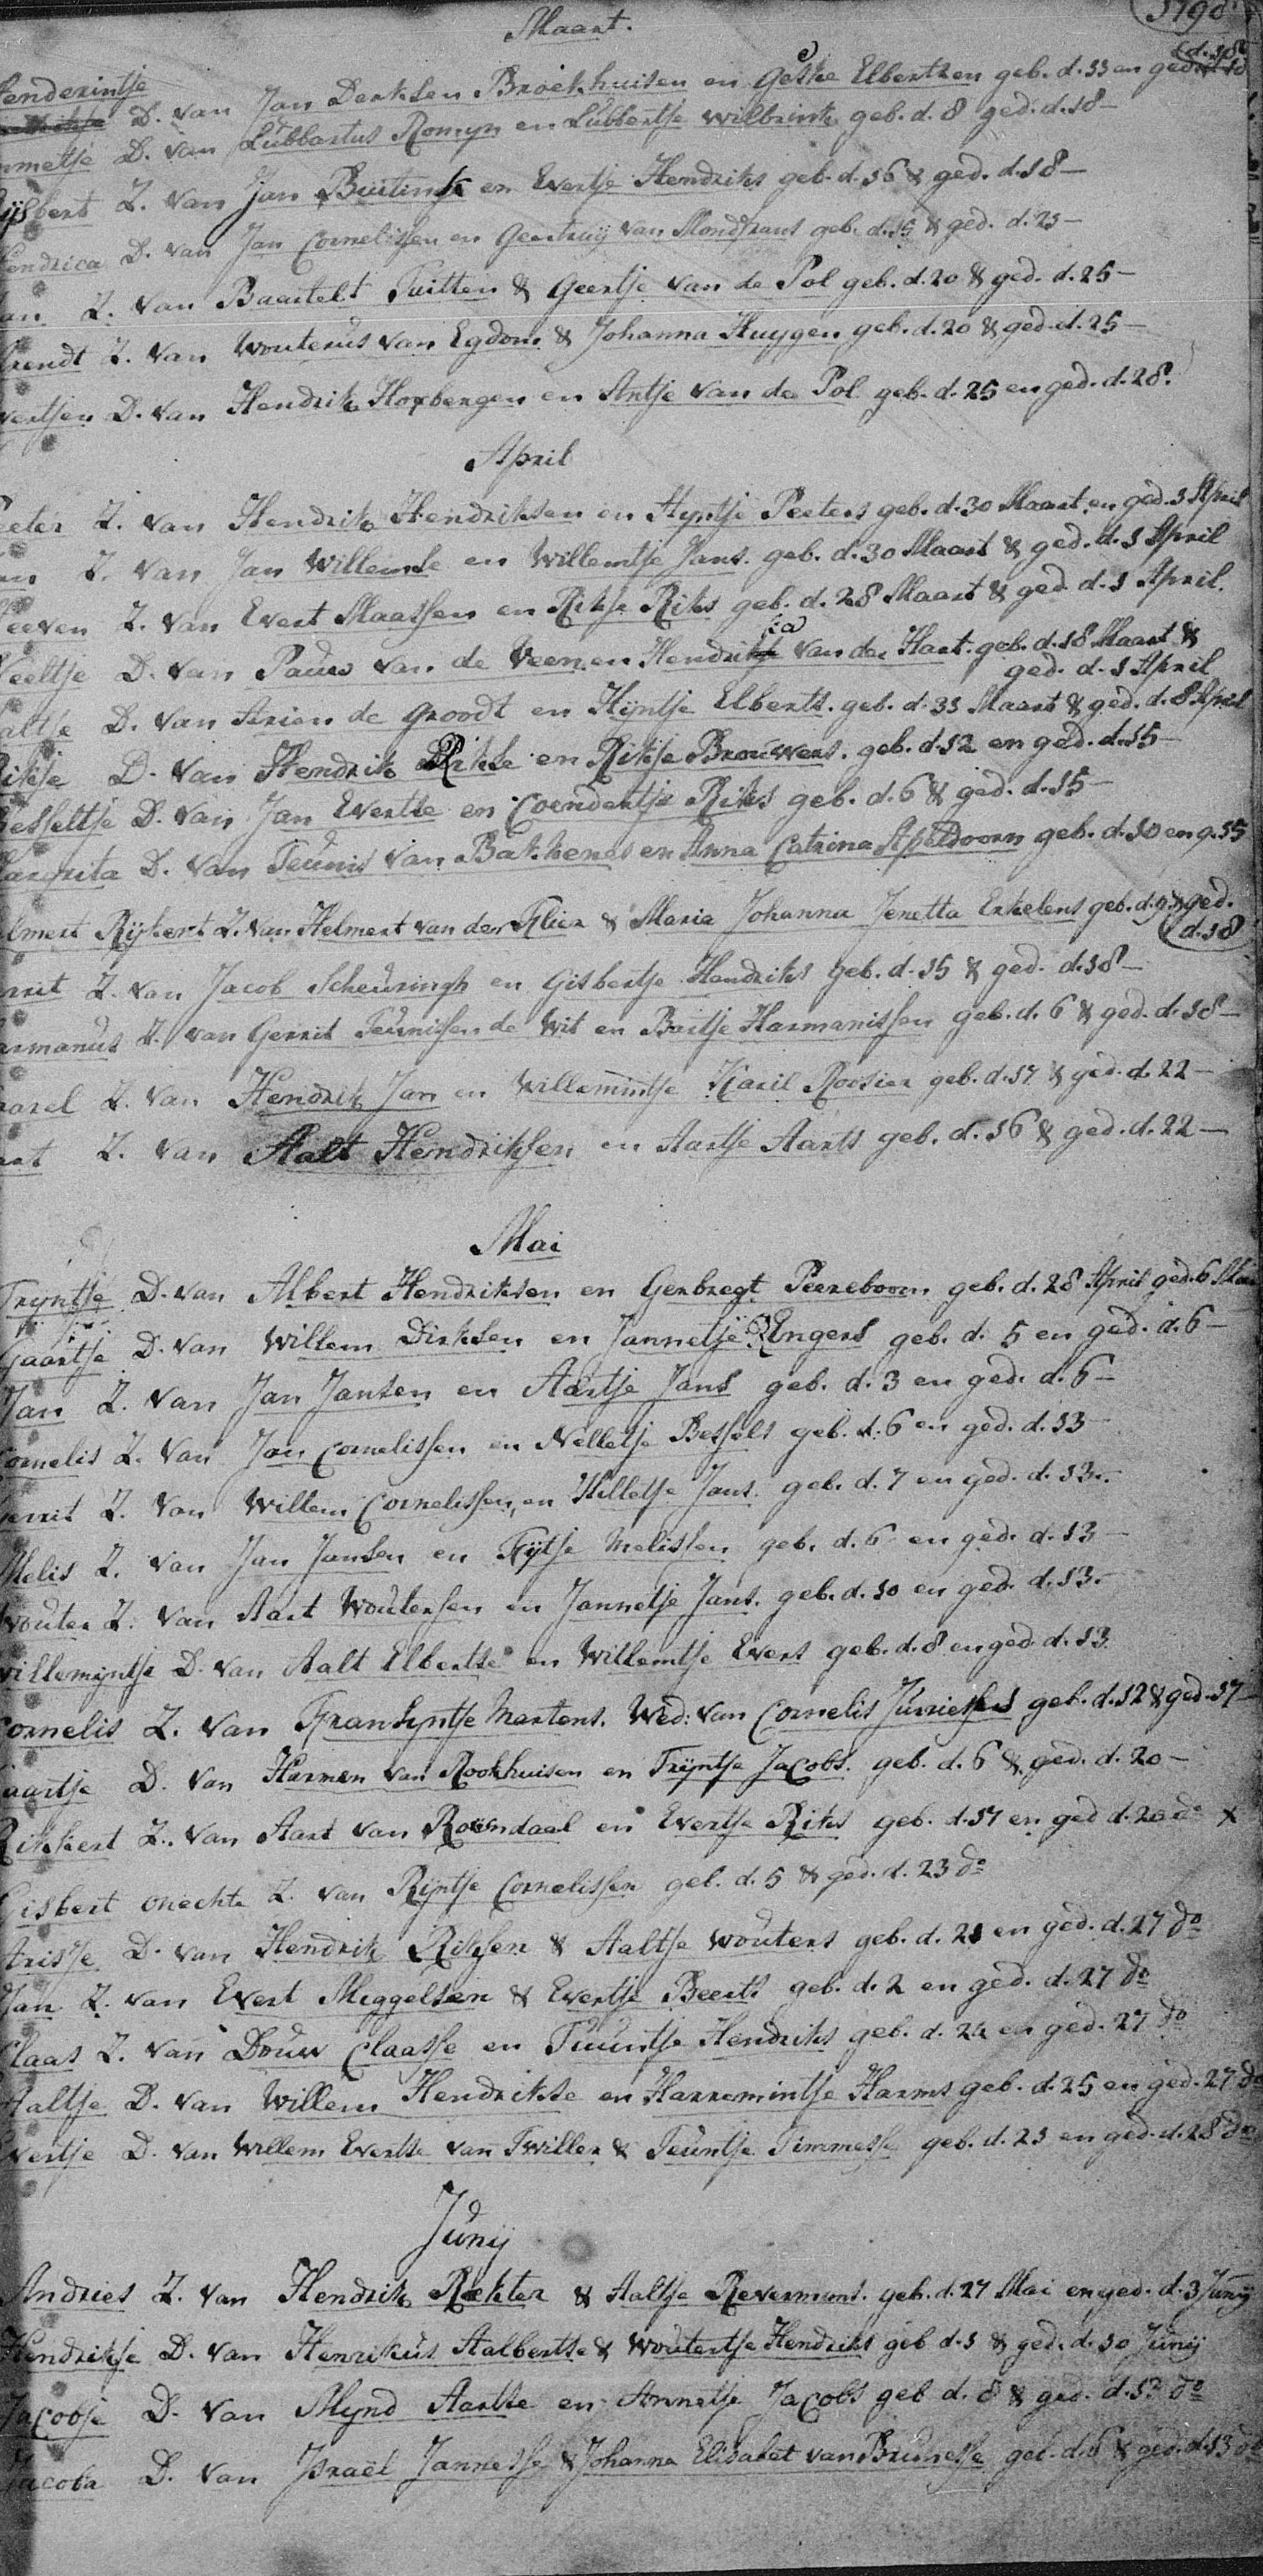 1798
Maart.
Henderintje D. van Jan Derksen Broekhuisen en Geske Elbertsen geb. d. 11 en ged. d. 18
mmetje D. van Lubbartus Romyn en Lubbertje Wilbrink geb. d. 8 ged. d. 18 —
ijsbert Z. van Jan Buitink en Evertje Hendriks geb. d. 16 & ged. d. 18 —
Hendrica D. van Jan Cornelissen en Geertruij van Mondfrans geb. d. 15 & ged. d. 21 —
an Z. van Baartelt Tuitten & Geertje van de Pol geb. d. 20 & ged. d. 25 —
rendt Z. van Wouterus van Egdom & Johanna Huygen geb. d. 20 & ged. d. 25 —
vertjen D. van Hendrik Horbergen en Antje van de Pol geb. d. 25 en ged. d. 28.
April
eeter Z. van Hendrik Hendriksen en Hyntje Peeters geb. d. 30 Maart en ged. 1 April
an Z. van Jan Willemse en Willemtje Jans. geb. d. 30 Maart & ged. d. 1 April
eeven Z. van Evert Maassen en Rikje Riks geb. d. 28 Maart & ged d. 1 April.
Neeltje D. van Pauw van de Veen en Hendrika van der Hart. geb. d. 18 Maart &
ged. d. 1 April
altje D. van Arien de Groodt en Hijntje Elberts. geb. d. 31 Maart & ged. d. 8 April
Rikje D. van Hendrik Rikse en Rikje Brouwers. geb. d. 12 en ged. d. 15 —
Besseltje D. van Jan Evertse en Coendertje Riks geb. d. 6 & ged. d. 15 —
Margrita D. van Teunis van Bakkenes en Anna Catrina Apeldoorn geb. d. 10 en g. 15
elmert Rijkert Z. van Helmert van der Flier & Maria Johanna Jenetta Erkelens geb. d. 9 & ged.
d. 18
errit Z. van Jacob Scheuringh en Gisbertje Hendriks geb. d. 15 & ged. d. 18 —
armanus Z. van Gerrit Teunissen de Wit en Bartje Harmanissen geb. d. 6 & ged. d. 18 —
arel Z. van Hendrik Jan en Willemintje Karil Roosier geb. d. 17 & ged. d. 22 —
art Z. van Aalt Hendriksen en Aartje Aarts geb. d. 16 & ged. d. 22 —
Mai
Tryntje D. van Albert Hendriksen en Gerbregt Peereboom geb. d. 28 April ged. 6 Mai
Gaartje D. van Willem Dirksen en Jannetje Engers geb. d. 5 en ged. d. 6 —
Jan Z. van Jan Jansen en Aartje Jans geb. d. 3 en ged. d. 6 —
Cornelis Z. van Jan Cornelissen en Nelletje Bessels geb. d. 6 en ged. d. 13 —
Gerrit Z. van Willem Cornelissen, en Hilletje Jans. geb. d. 7 en ged. d. 13. —
Melis Z. van Jan Jansen en Fijtje Melissen geb. d. 6 en ged. d. 13 —
Wouter Z. van Aart Woutersen en Jannetje Jans. geb. d. 10 en ged. d. 13. —
Willemyntje D. van Aalt Elbertse en Willemtje Evers geb. d. 8 en ged. d. 13
Cornelis Z. van Fransyntje Martens. Wed: van Cornelis Jurriesses geb. d. 12 & ged. 17 —
aartje D. van Harmen van Rookhuisen en Trijntje Jacobs. geb. d. 6 & ged. d. 20 —
Rikkert Z. van Aart van Roosendaal en Evertje Riks geb. d. 17 en ged d. 20 do x
Gisbert onechte Z. van Rijntje Cornelissen geb. d. 5 & ged. d. 23 do
Arisje D. van Hendrik Riksen & Aaltje Wouters geb. d. 21 en ged. d. 27 do
Jan Z. van Evert Miggelsen & Evertje Beerts geb. d. 2 en ged. d. 27 do
Claas Z. van Douw Claasse en Teuntje Hendriks geb. d. 24 en ged. 27 do
Aaltje D. van Willem Hendrikse en Harremintje Harms geb. d. 25 en ged. 27 do
Evertje D. van Willem Evertse van Twiller & Teuntje Timmesse geb. d. 23 en ged. d. 28 do
Junij
Andries Z. van Hendrik Rickter & Aaltje Revermans. geb. d. 27 Mai en ged. d. 3 Junij
Hendrikje D. van Henrikus Aalbertse & Woutertje Hendriks geb d. 1 & ged. d. 10 Junij
Jacobje D. van Mynd Aartse en Annetje Jacobs geb d. 8 & ged. d. 12 do
Jacoba D. van Israël Jannesse & Johanna Elisabet van Brunesse geb. d. 6 & ged. d. 13 do